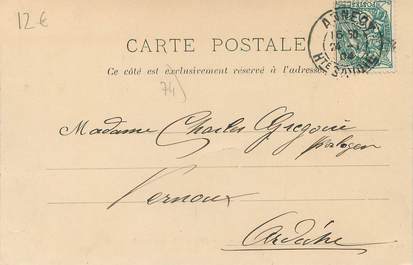 12 €
ANNECY
16 50
HTE SAVOIE
CARTE POSTALE
Ce côté est exclusivement réservé à l'adresse
74)
Madame Charles Gregoire
horloger
Vernoux
Ardèche